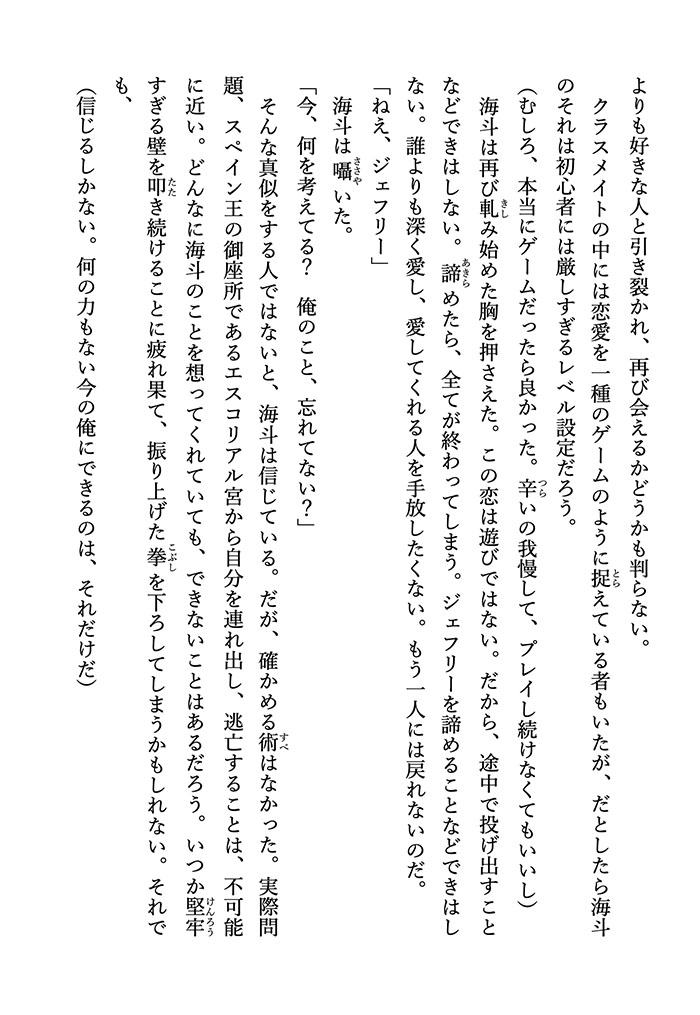 よりも好きな人と引き裂かれ、再び会えるかどうかも判らない。
クラスメイトの中には恋愛を一種のゲームのように捉えている者もいたが、だとしたら海斗
のそれは初心者には厳しすぎるレベル設定だろう。
（むしろ、本当にゲームだったら良かった。辛いの我慢して、プレイし続けなくてもいいし）
海斗は再び軋み始めた胸を押さえた。この恋は遊びではない。だから、途中で投げ出すこと
などできはしない。諦めたら、全てが終わってしまう。ジェフリーを諦めることなどできはし
ない。誰よりも深く愛し、愛してくれる人を手放したくない。もう一人には戻れないのだ。
「ねえ、ジェフリー」
海斗は囁いた。
「今、何を考えてる？　俺のこと、忘れてない？」
そんな真似をする人ではないと、海斗は信じている。だが、確かめる術はなかった。実際問
題、スペイン王の御座所であるエスコリアル宮から自分を連れ出し、逃亡することは、不可能
に近い。どんなに海斗のことを想ってくれていても、できないことはあるだろう。いつか堅牢
すぎる壁を叩き続けることに疲れ果て、振り上げた拳を下ろしてしまうかもしれない。それで
も、
（信じるしかない。何の力もない今の俺にできるのは、それだけだ）